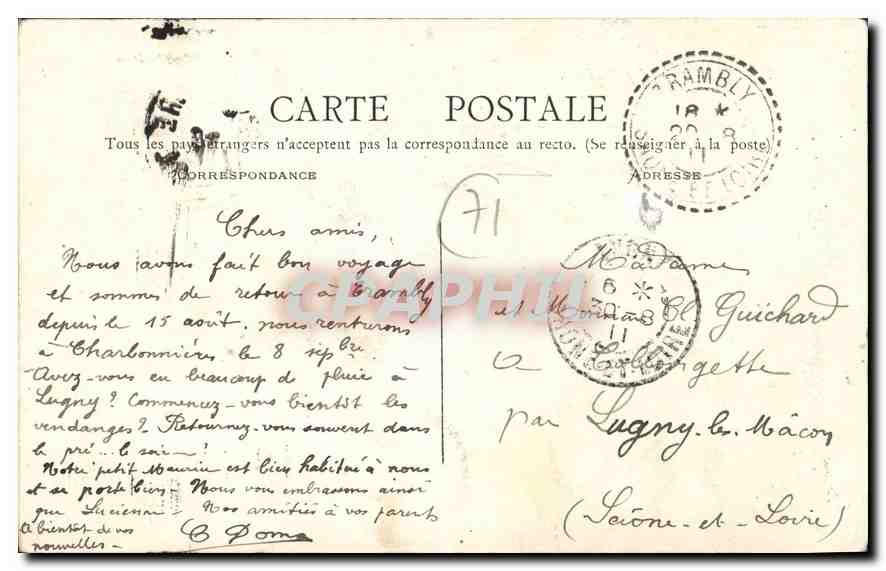 CARTE POSTALE
Tous les pays étrangers n'acceptent pas la correspondance au recto. (Se renseigner à la poste)
CORRESPONDANCE
ADRESSE
TRAMBLY
18 *
SAONE-ET-LOIRE
71
6 *
30 - 8
11
Chers amis,
Nous avons fait bon voyage
et sommes de retour à Trambly
depuis le 15 août. nous rentrerons
à Charbonnières le 8 sepbre
Avez-vous eu beaucoup de pluie à
Lugny? Commencez-vous bientôt les
vendanges? Retournez-vous souvent dans
le pré... le soir!
Notre petit Maurice est bien habitué à nous
et se porte bien - Nous vous embrassons ainsi
que Lucienne - Nos amitiés à vos parents
A bientôt de vos
nouvelles -
Madame
et Monsieur Cl Guichard
à Georgette
par Lugny-les-Mâcon
(Saône-et-Loire)
CPAPHIL